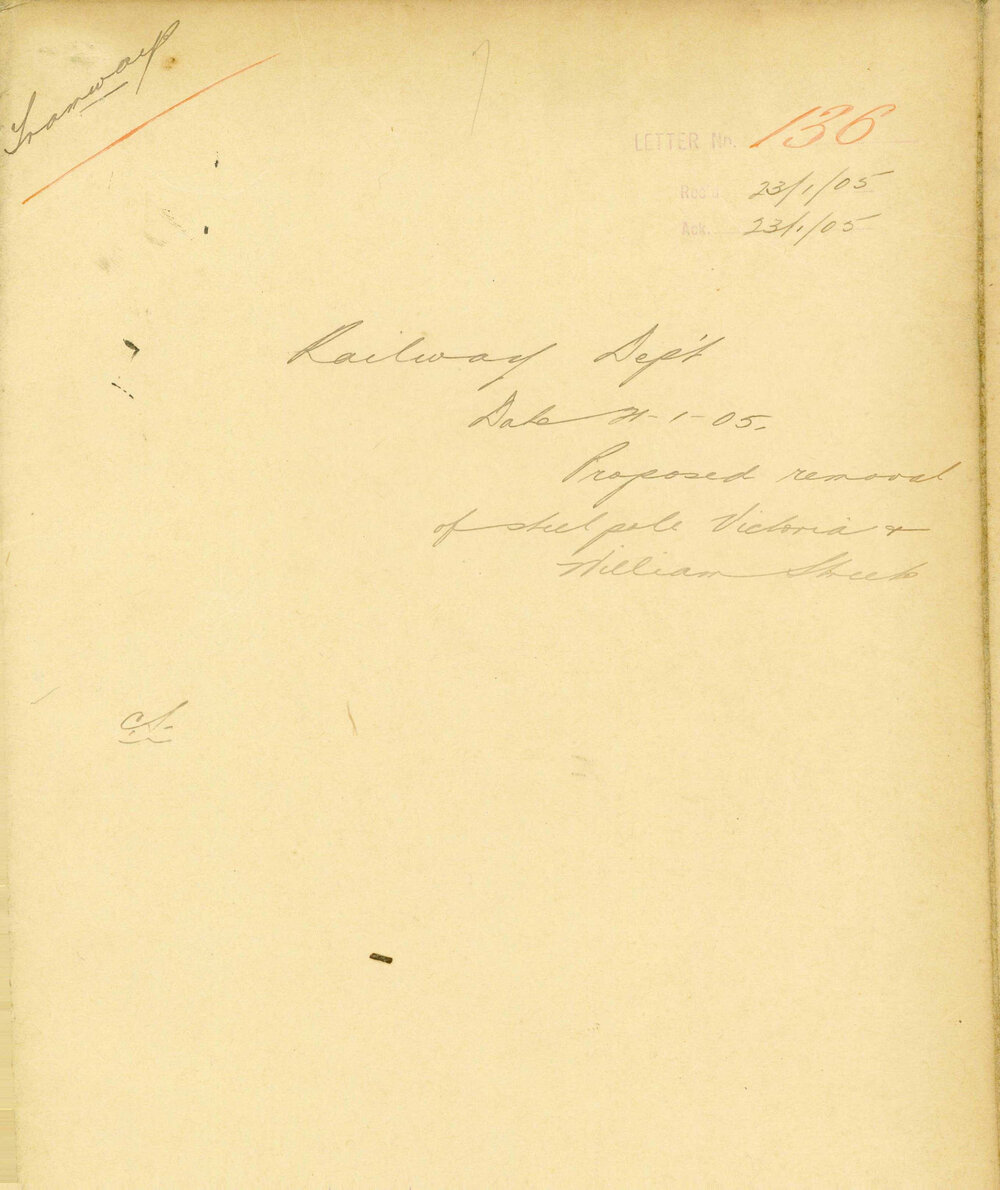 Tramway
LETTER No. 136
Rec'd 23/1/05
Ack. 23/1/05
Railway Dep't
Date 21-1-05.
Proposed removal
of steel pole Victoria &
William Streets